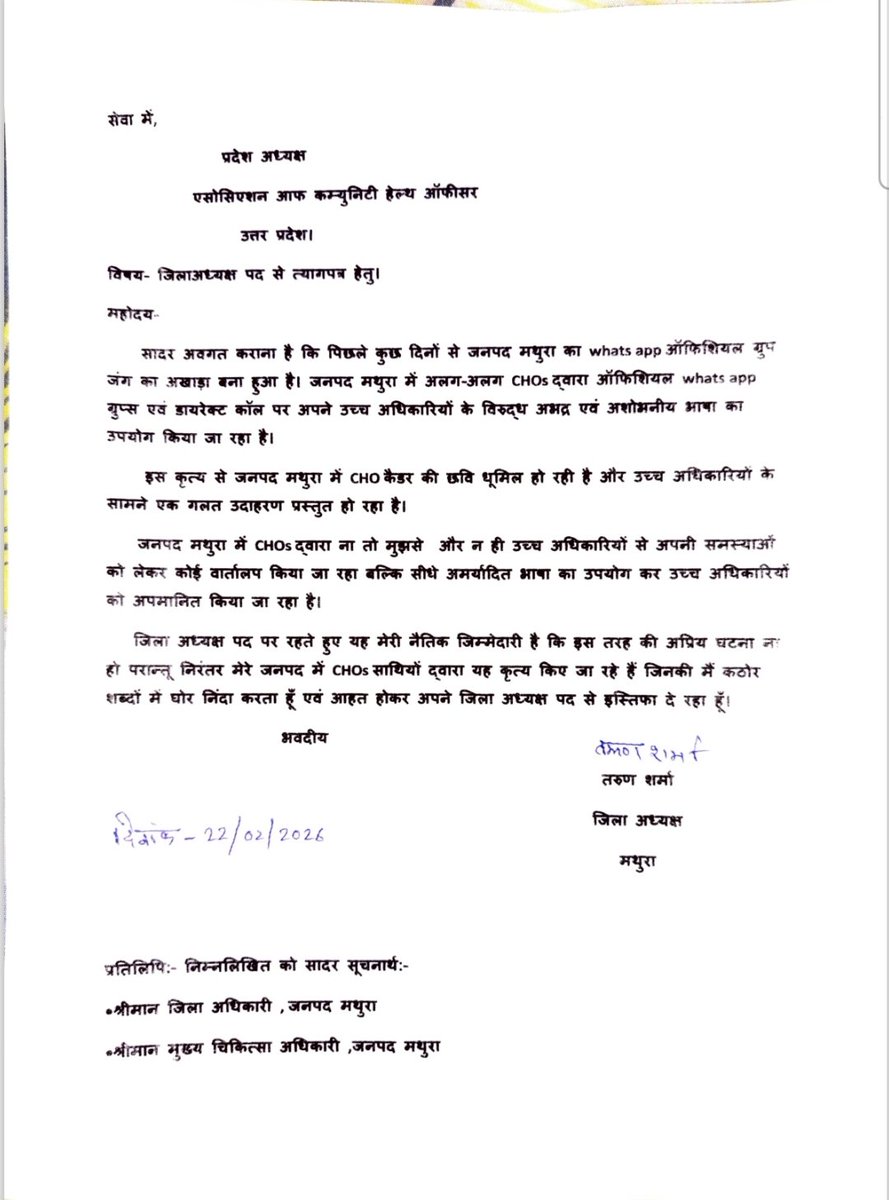 सेवा में,
प्रदेश अध्यक्ष
एसोसिएशन आफ कम्युनिटी हेल्थ ऑफीसर
उत्तर प्रदेश।
विषय- जिलाअध्यक्ष पद से त्यागपत्र हेतु।
महोदय-
सादर अवगत कराना है कि पिछले कुछ दिनों से जनपद मथुरा का whats app ऑफिशियल ग्रुप
जंग का अखाड़ा बना हुआ है। जनपद मथुरा में अलग-अलग CHOs द्वारा ऑफिशियल whats app
ग्रुप्स एवं डायरेक्ट कॉल पर अपने उच्च अधिकारियों के विरुद्ध अभद्र एवं अशोभनीय भाषा का
उपयोग किया जा रहा है।
इस कृत्य से जनपद मथुरा में CHO कैडर की छवि धूमिल हो रही है और उच्च अधिकारियों के
सामने एक गलत उदाहरण प्रस्तुत हो रहा है।
जनपद मथुरा में CHOs द्वारा ना तो मुझसे और न ही उच्च अधिकारियों से अपनी समस्याओं
को लेकर कोई वार्तालप किया जा रहा बल्कि सीधे अमर्यादित भाषा का उपयोग कर उच्च अधिकारियों
को अपमानित किया जा रहा है।
जिला अध्यक्ष पद पर रहते हुए यह मेरी नैतिक जिम्मेदारी है कि इस तरह की अप्रिय घटना न
हो परान्तू निरंतर मेरे जनपद में CHOs साथियों द्वारा यह कृत्य किए जा रहे हैं जिनकी मैं कठोर
शब्दों में घोर निंदा करता हूँ एवं आहत होकर अपने जिला अध्यक्ष पद से इस्तिफा दे रहा हूँ।
भवदीय
तरुण शर्मा
तरुण शर्मा
जिला अध्यक्ष
दिनांक - 22/02/2026
मथुरा
प्रतिलिपि:- निम्नलिखित को सादर सूचनार्थ:-
•श्रीमान जिला अधिकारी ,जनपद मथुरा
•श्रीमान मुख्य चिकित्सा अधिकारी ,जनपद मथुरा